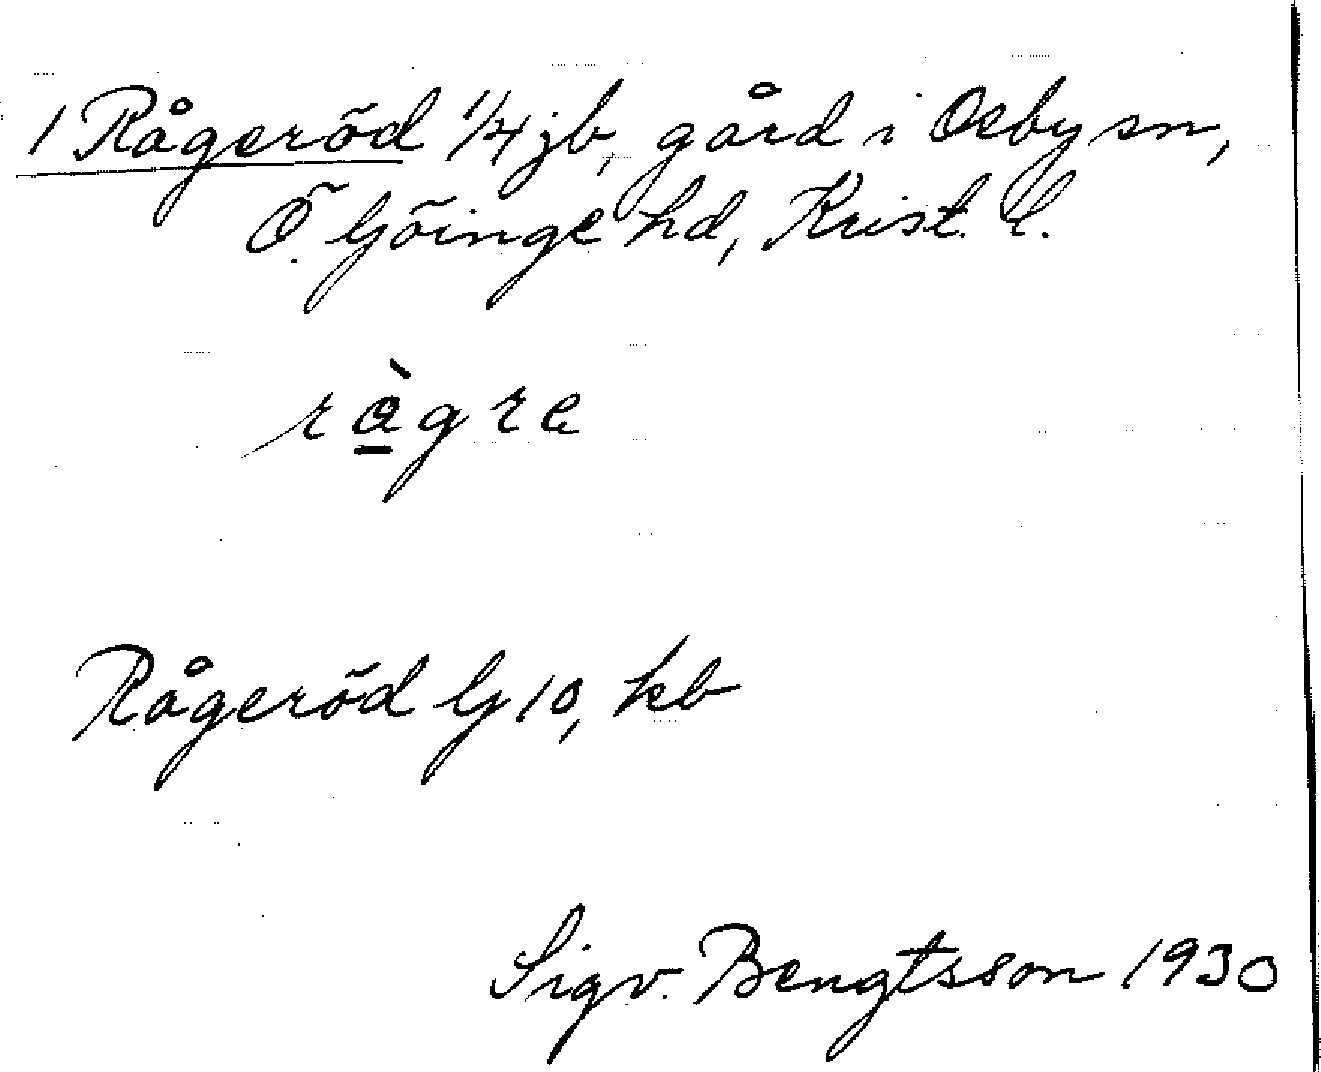 1 Rågeröd 1/4 jb, gård i Osby sn,
Ö. Göinge hd, Krist. l.
rågre
Rågeröd G 10, kb
Sigv. Bengtsson 1930